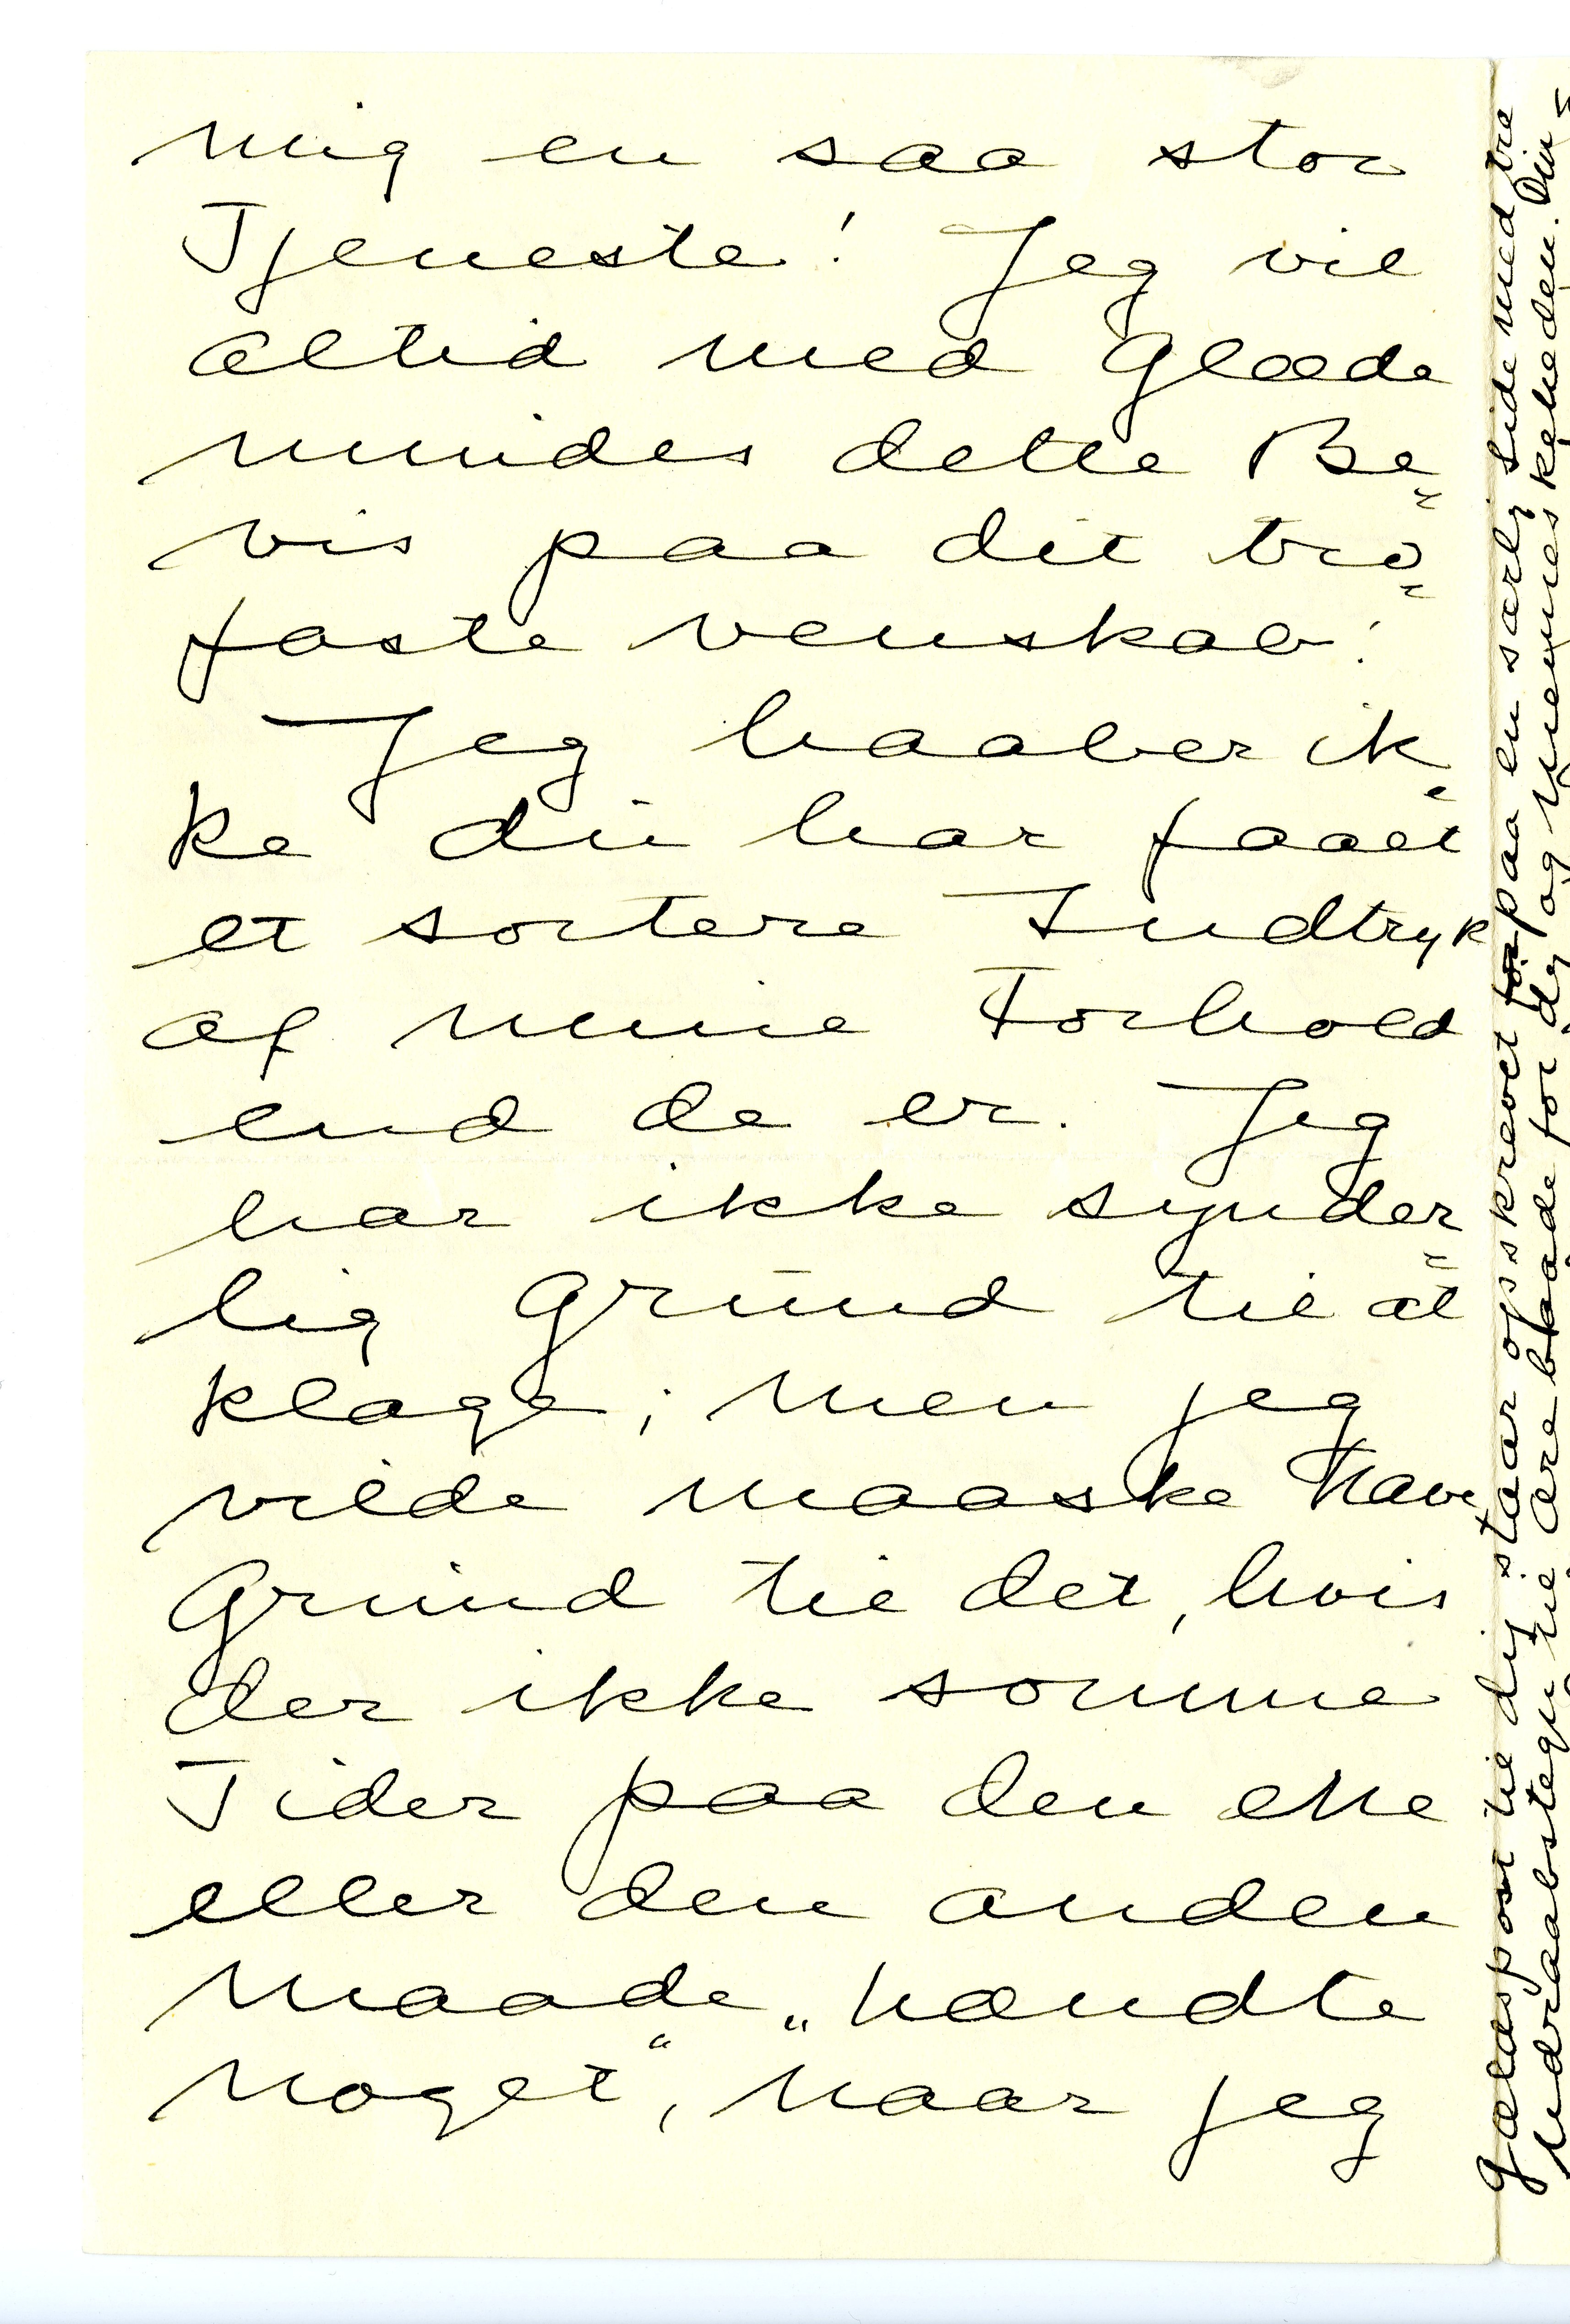 mig en saa stor
Tjeneste! Jeg vil
altid med Glæde
mindes dette Be„
vis paa dit tro„
faste Venskab!
Jeg haaber ik„
ke du har faaet
et sortere Indtryk
af mine Forhold
end de er. Jeg
har ikke synder„
lig Grund til at
klage; men jeg
vilde maaske have
Grund til det, hvis
der ikke somme
Tider paa den ene
eller den anden
Maade „hændte
noget“, naar jeg
Gældspost til dig staar opskrevet paa en særlig Side med tre
Udraabstegn til Ære baade for dig og Menneskeheden. Din